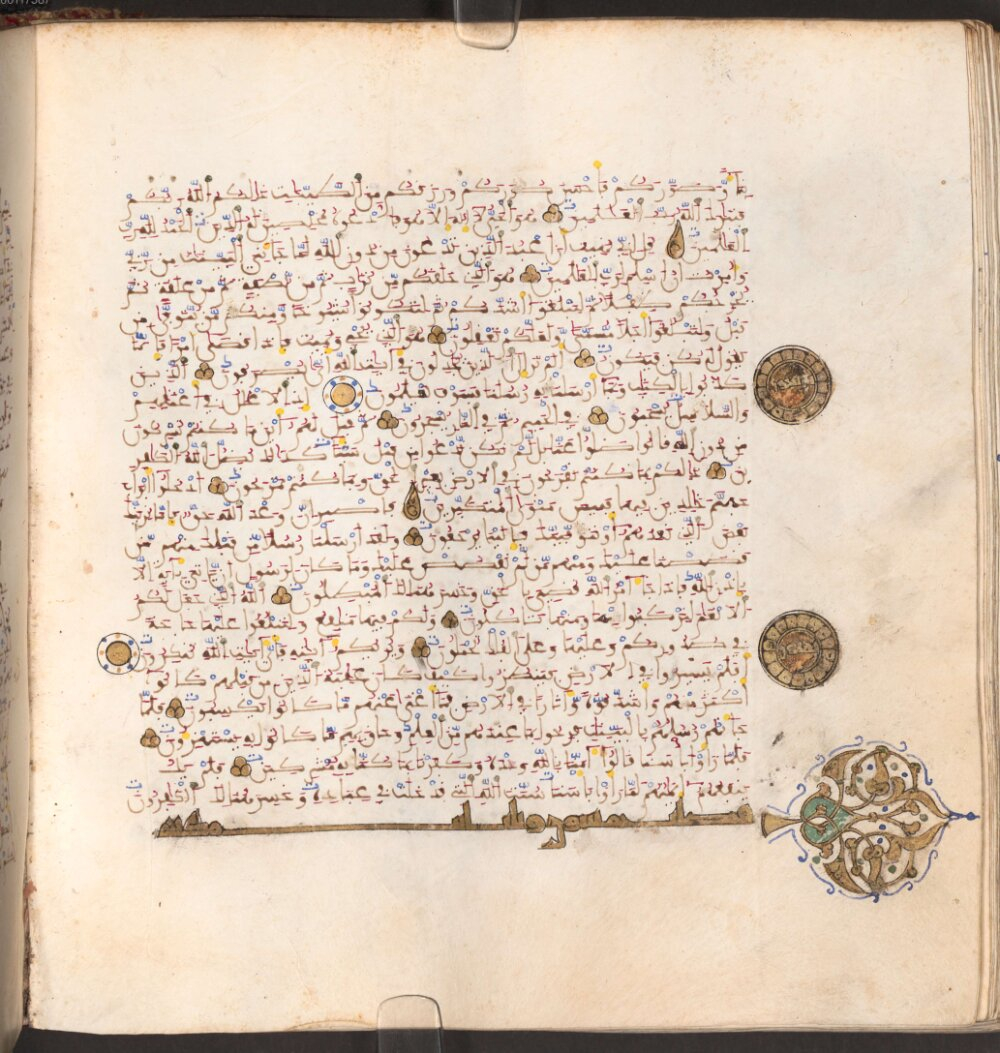 ماء وصوركم فأحسن صوركم ورزقكم من الطيبات ذلكم الله ربكم
فتبارك الله رب العالمين هو الحي لا إله إلا هو فادعوه مخلصين له الدين الحمد لله رب
العالمين قل إني نهيت أن أعبد الذين تدعون من دون الله لما جاءني البينات من ربي
وأمرت أن أسلم لرب العالمين هو الذي خلقكم من تراب ثم من نطفة ثم من علقة ثم
يخرجكم طفلا ثم لتبلغوا أشدكم ثم لتكونوا شيوخا ومنكم من يتوفى من
قبل ولتبلغوا أجلا مسمى ولعلكم تعقلون هو الذي يحيي ويميت فإذا قضى أمرا فإنما
يقول له كن فيكون ألم تر إلى الذين يجادلون في آيات الله أنى يصرفون الذين
كذبوا بالكتاب وبما أرسلنا به رسلنا فسوف يعلمون إذ الأغلال في أعناقهم
والسلاسل يسحبون في الحميم ثم في النار يسجرون ثم قيل لهم أين ما كنتم تشركون
من دون الله قالوا ضلوا عنا بل لم نكن ندعوا من قبل شيئا كذلك يضل الله الكافر
ين ذلكم بما كنتم تفرحون في الأرض بغير الحق وبما كنتم تمرحون ادخلوا أبواب
جهنم خالدين فيها فبئس مثوى المتكبرين فاصبر إن وعد الله حق فإما نرينك
بعض الذي نعدهم أو نتوفينك فإلينا يرجعون ولقد أرسلنا رسلا من قبلك منهم من
قصصنا عليك ومنهم من لم نقصص عليك وما كان لرسول أن يأتي بآية إلا
بإذن الله فإذا جاء أمر الله قضي بالحق وخسر هنالك المبطلون الله الذي جعل لكم
الأنعام لتركبوا منها ومنها تأكلون ولكم فيها منافع ولتبلغوا عليها حاجة
في صدوركم وعليها وعلى الفلك تحملون ويريكم آياته فأي آيات الله تنكرون
أفلم يسيروا في الأرض فينظروا كيف كان عاقبة الذين من قبلهم كانوا
أكثر منهم وأشد قوة وآثارا في الأرض فما أغنى عنهم ما كانوا يكسبون فلما
جاءتهم رسلهم بالبينات فرحوا بما عندهم من العلم وحاق بهم ما كانوا به يستهزءون
فلما رأوا بأسنا قالوا آمنا بالله وحده وكفرنا بما كنا به مشركين فلم يك
ينفعهم إيمانهم لما رأوا بأسنا سنت الله التي قد خلت في عباده وخسر هنالك الكافرون
فصلت خمسون وثلاث مكية